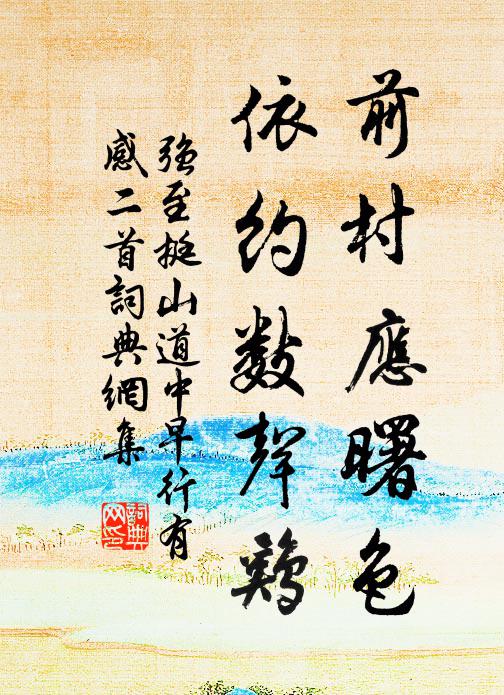 前村應曙色
依約數聲鷄
強至挺山道中早行有
感二首詞典網集
詞典
網印